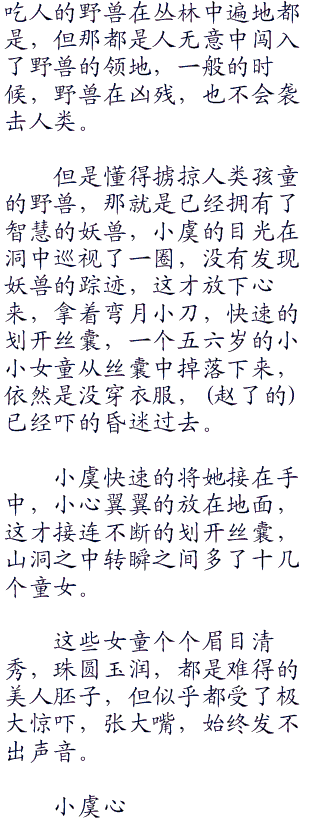 吃人的野兽在丛林中遍地都
是，但那都是人无意中闯入
了野兽的领地，一般的时
候，野兽在凶残，也不会袭
击人类。
但是懂得掳掠人类孩童
的野兽，那就是已经拥有了
智慧的妖兽，小虞的目光在
洞中巡视了一圈，没有发现
妖兽的踪迹，这才放下心
来，拿着弯月小刀，快速的
划开丝囊，一个五六岁的小
小女童从丝囊中掉落下来，
依然是没穿衣服，(赵了的)
已经吓的昏迷过去。
小虞快速的将她接在手
中，小心翼翼的放在地面，
这才接连不断的划开丝囊，
山洞之中转瞬之间多了十几
个童女。
这些女童个个眉目清
秀，珠圆玉润，都是难得的
美人胚子，但似乎都受了极
大惊吓，张大嘴，始终发不
出声音。
小虞心